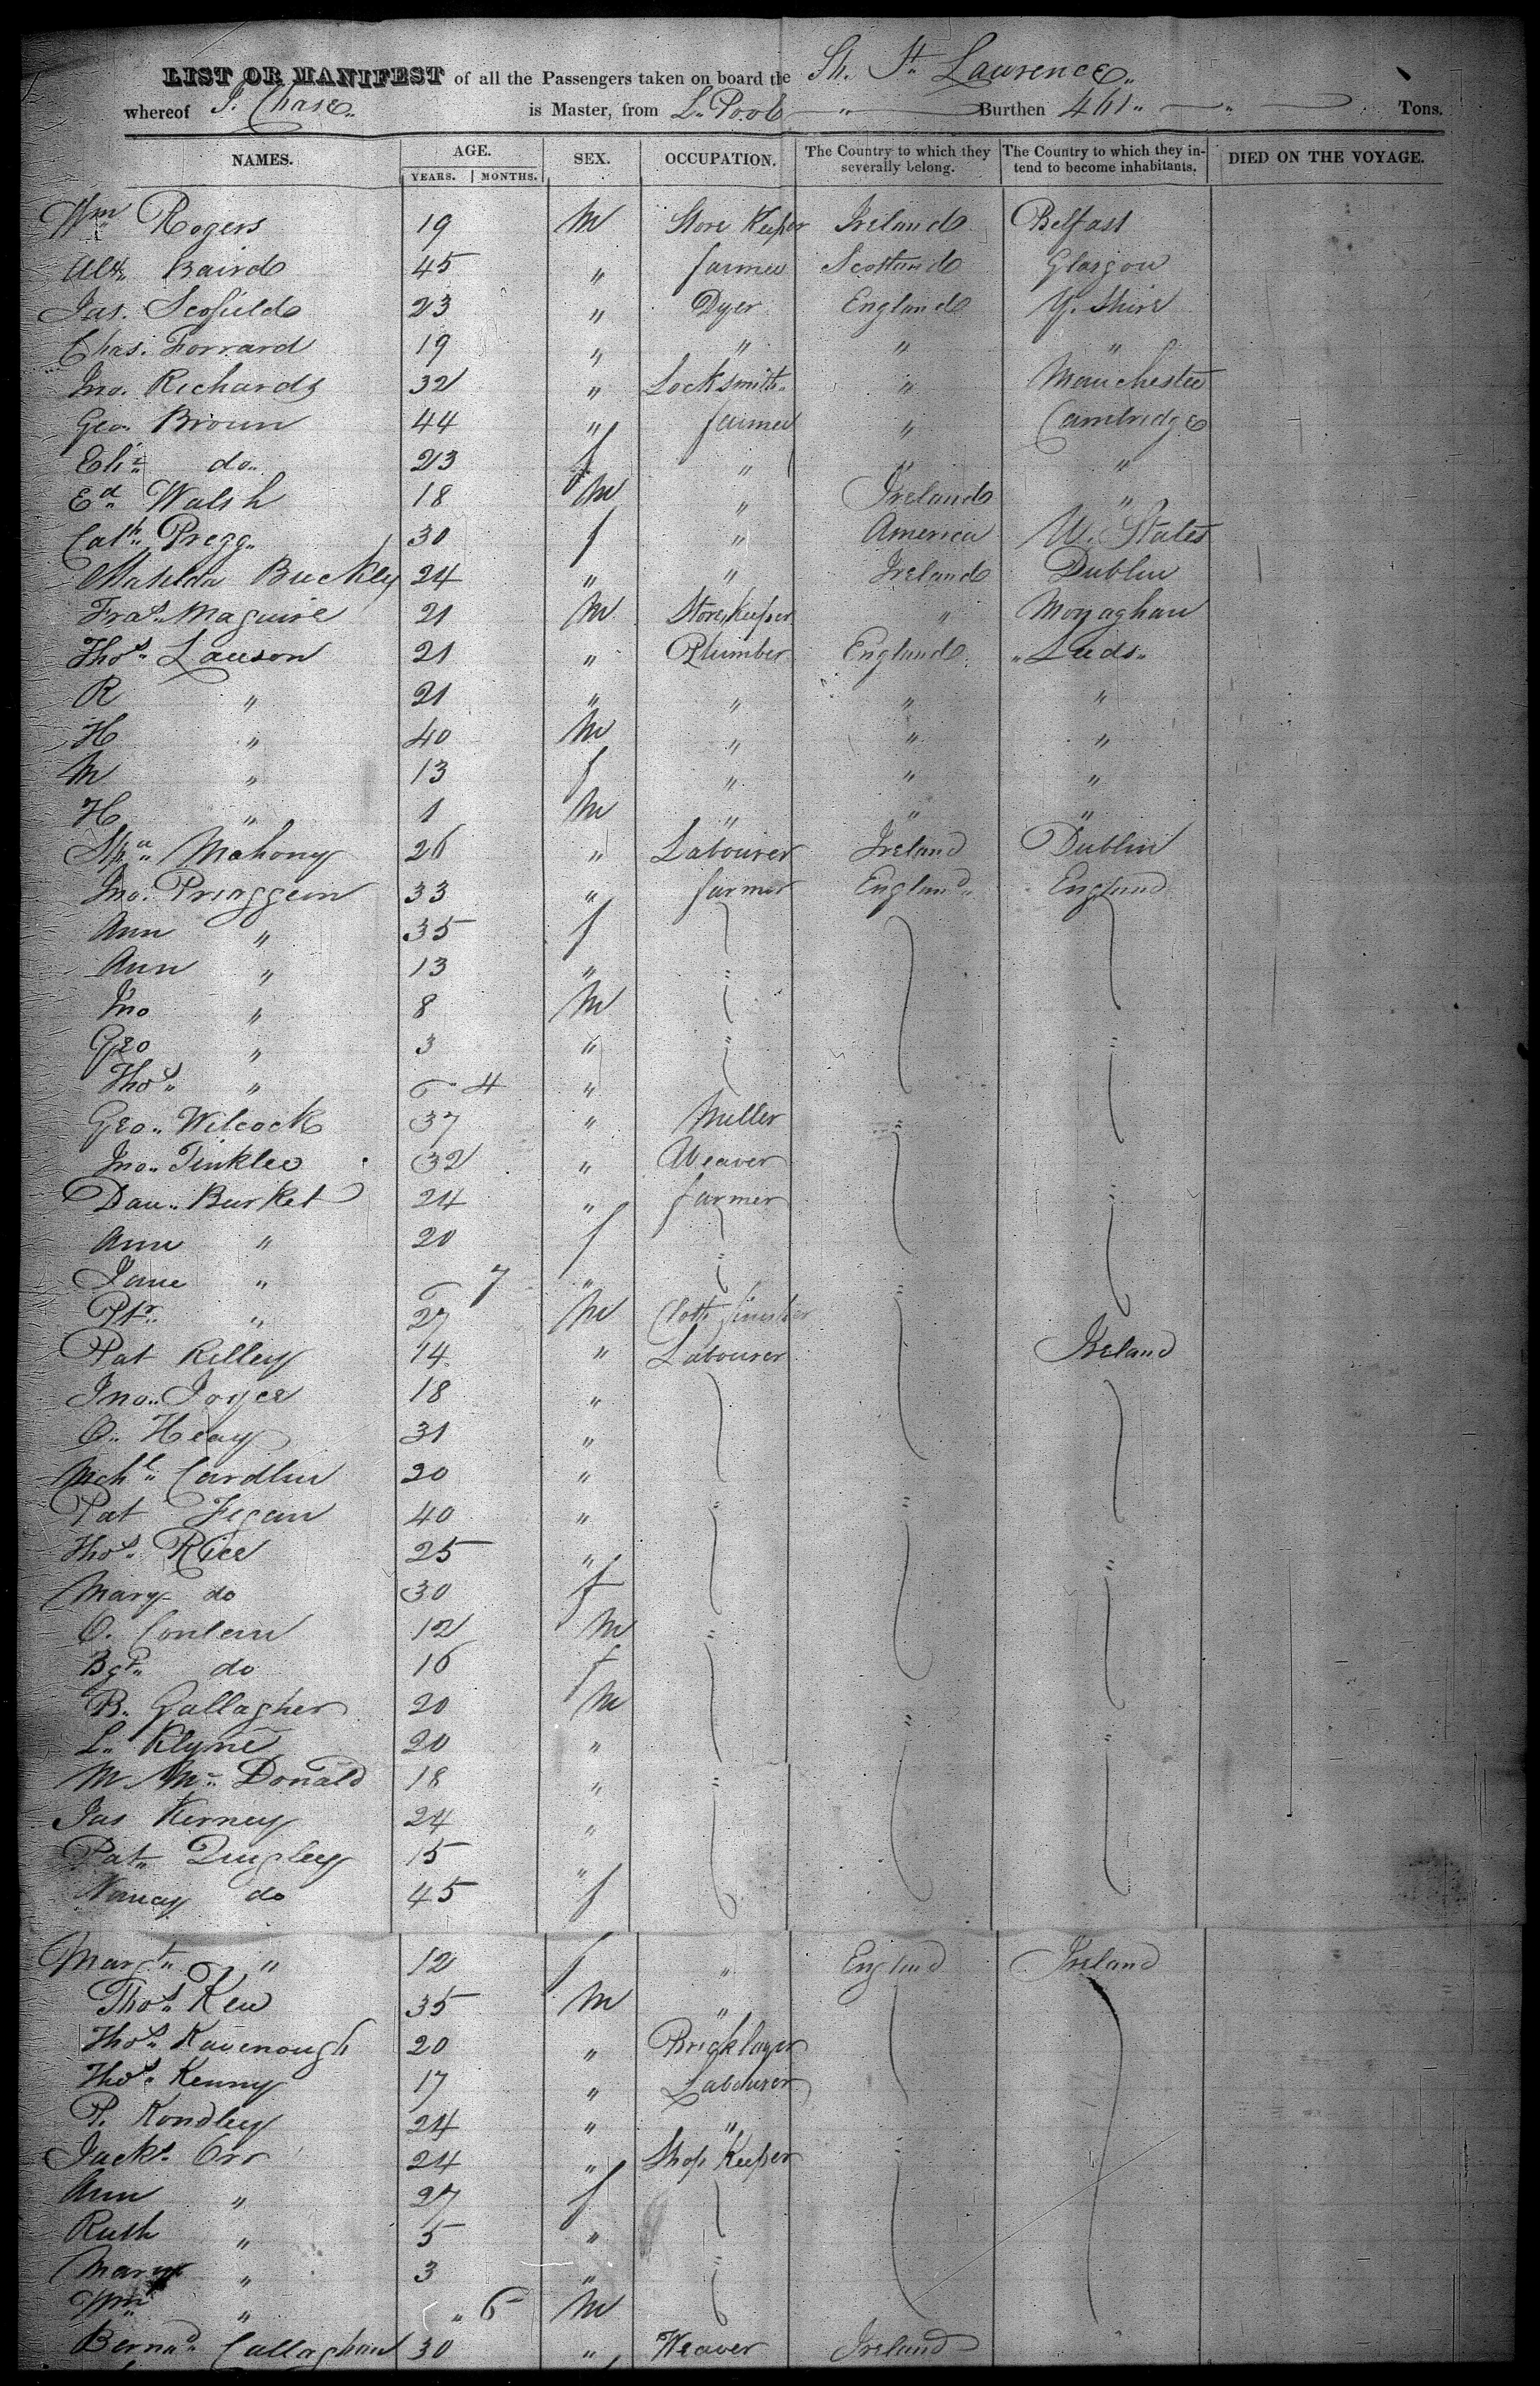 LIST OR MANIFEST of all the Passengers taken on board the Sh. St. Lawrence
whereof J. Chase is Master, from L. Pool " Burthen 461 " Tons.
NAMES. AGE. SEX. OCCUPATION. The Country to which they severally belong. The Country to which they intend to become inhabitants. DIED ON THE VOYAGE.
YEARS. MONTHS.
Wm Rogers 19 M Store Keeper Ireland Belfast
Alx Baird 45 " farmer Scotland Glasgow
Jas. Scofield 23 " Dyer England Y. Shire
Chas. Forrard 19 " " " "
Jno. Richards 32 " Locksmith " Manchester
Geo. Brown 44 " farmer " Cambridge
Eliz. do 23 f " " "
Ed. Walsh 18 M " Ireland "
Cath. Pregg 30 f " America U. States
Matilda Buckley 24 " " Ireland Dublin
Fras. Maguire 21 M Store Keeper " Monaghan
Thos. Lawson 21 " Plumber England Leeds
R " 21 " " " "
H " 40 M " " "
M " 13 f " " "
H " 1 M " " "
Mahony 26 " Labourer Ireland Dublin
Jno. 33 " farmer England England
Ann " 35 f
Ann " 13 "
Jno " 8 M
Geo " 3 "
Thos. " 4 "
Geo. Wilcock 37 " Miller
Jno. Tinkler 32 " Weaver
Dan. Burket 24 " farmer
Ann " 20 f
Jane " 7 "
Ptr. " 27 M Cloth finisher
Pat Killey 14 " Labourer Ireland
Jno. Joyce 18 "
O. Heay 31 "
Mchl. Cardlin 20 "
Pat Fegan 40 "
Thos. Rice 25 "
Mary do 30 f
O. Conlan 12 M
Bgt. do 16 f
B. Gallagher 20 M
L. Klyne 20 "
M Mc Donald 18 "
Jas Kerney 24 "
Pat. Quigley 15 "
Nancy do 45 f
Margt. " 12 f " England Ireland
Thos. Kew 35 M "
Thos. Kavenough 20 " Bricklayer
Thos. Kenny 17 " Labourer
P. Kondley 24 " "
Jack. Orr 24 " Shop Keeper
Ann " 27 f
Ruth " 5 "
Mary " 3 "
Wm " " 6 M
Bernad. Callaghan 30 " Weaver Ireland